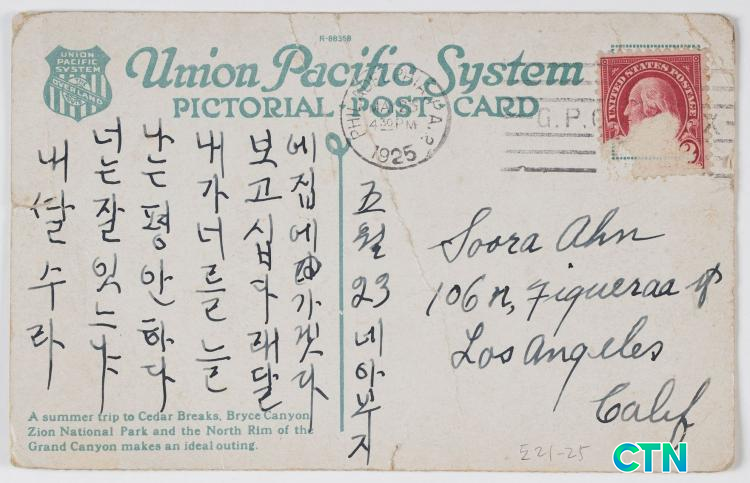 R-88358
UNION
PACIFIC
SYSTEM
THE
OVERLAND
Union Pacific System
PICTORIAL POST CARD
4 30 PM
1925
G.P.
UNITED STATES POSTAGE
2
내 딸 수라
너는 잘 잇느냐
나는 평안하다
내가 너를 늘
보고 십다 래달
에 집에 가겟다
五월 23 네 아부지
Soora Ahn
106 N, Figueraa st
Los Angeles
Calif
A summer trip to Cedar Breaks, Bryce Canyon,
Zion National Park and the North Rim of the
Grand Canyon makes an ideal outing.
E21-25
CTN